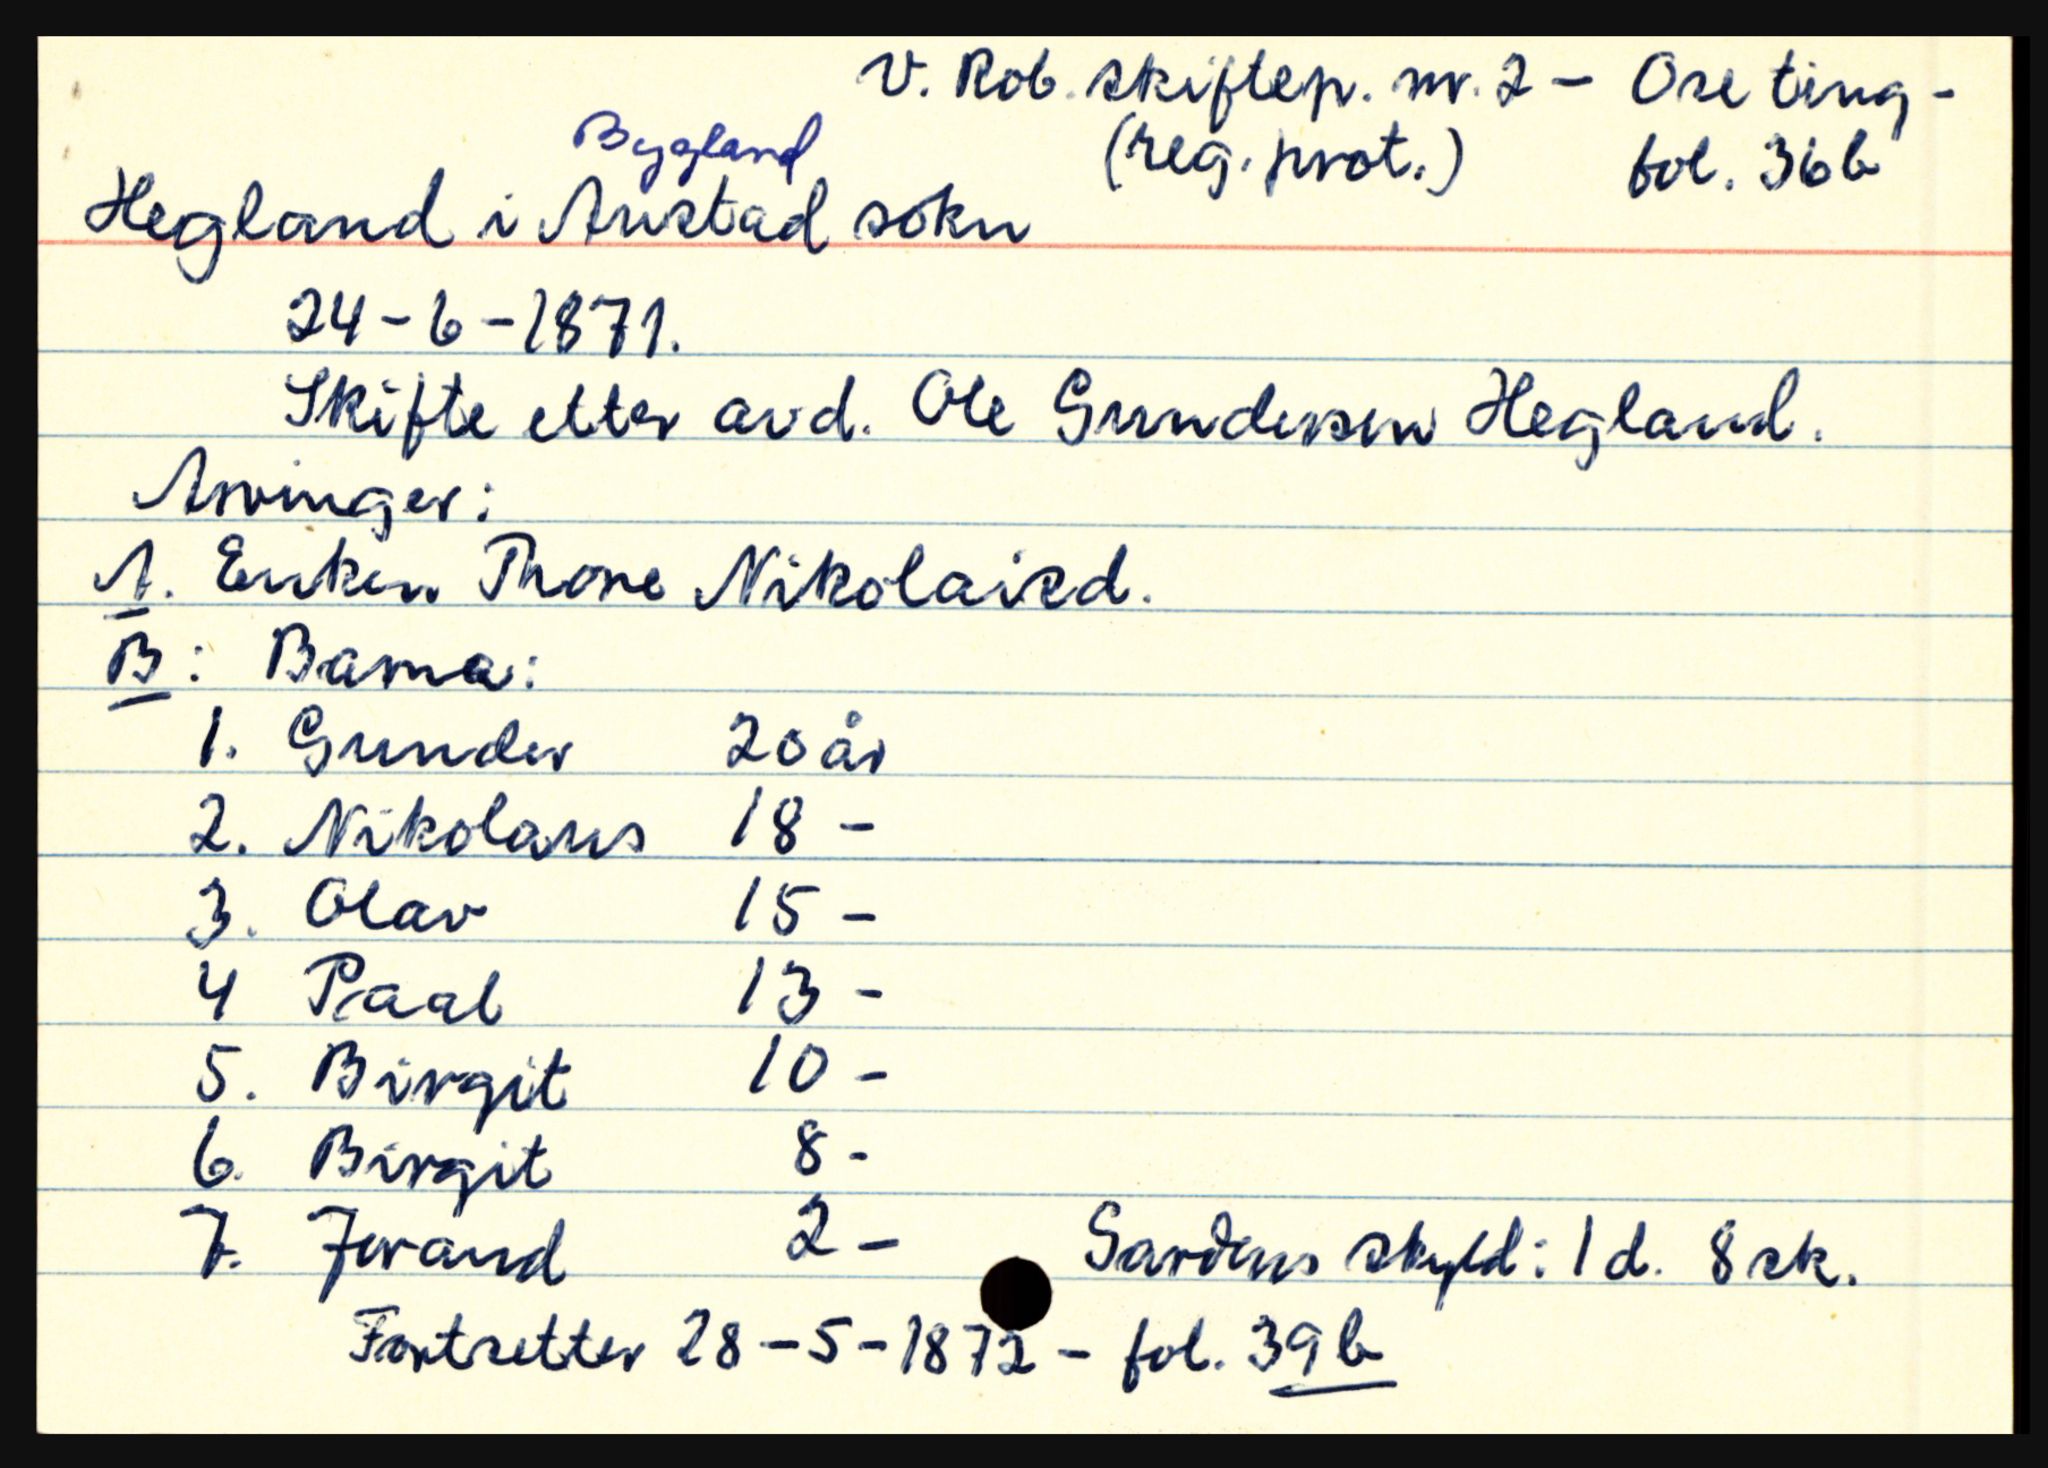 V. Rob. skiftep. nr. 2 - Ose ting -
(reg. prot.) fol. 36b
Bygland
Hegland i Austad sokn
24-6-1871.
Skifte etter avd. Ole Gundersen Hegland.
Arvinger:
A. Enken Thone Nikolaisd.
B: Barna:
1. Gunder 20 år
2. Nikolaus 18 -
3. Olav 15 -
4 Paal 13 -
5. Birgit 10 -
6. Birgit 8 -
7. Jorand 2 - Gardens skyld: 1 d. 8 sk.
Fortsetter 28-5-1872 - fol. 39b